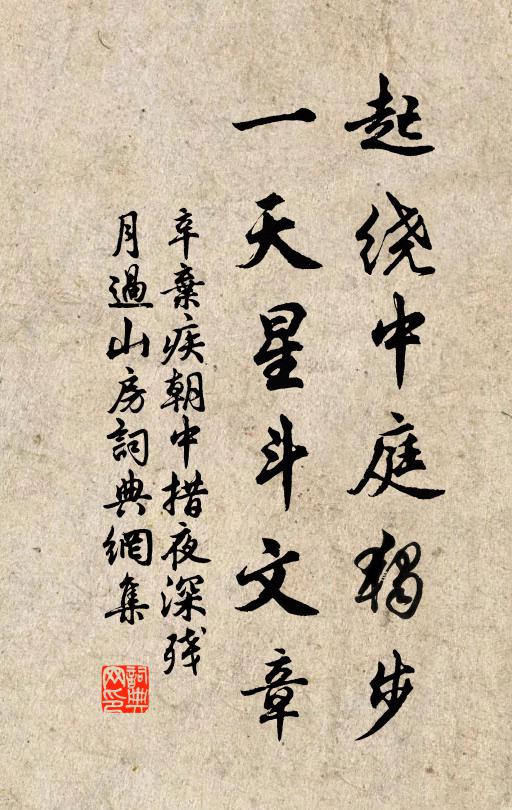 起绕中庭独步
一天星斗文章
辛棄疾朝中措夜深残
月過山房詞典網集
詞典
网印